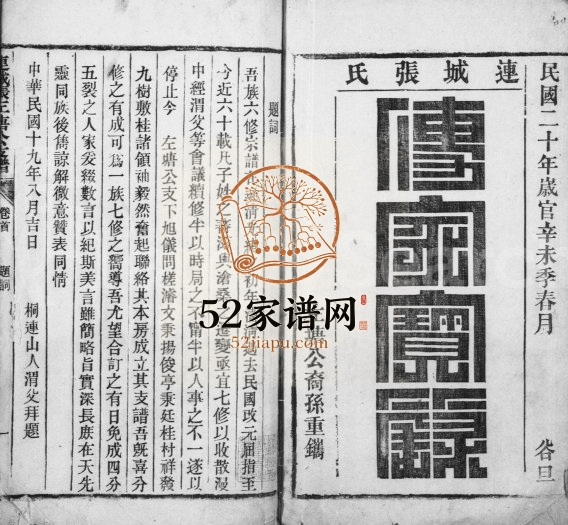 民國二十年歲官辛未季春月 谷旦
連城張氏
傳家寶錄
公裔孫重鐫
題詞
吾族六修宗譜初年過去民國改元屈指至
今近六十載子姓之與滄桑之遷變亟宜七修以收散漫
中經渭父等會議續修半以時局之不甯半以人事之不一遂以
停止今 左公支下旭儀問槎濤文秉揚俊亭秉廷桂村祥發
九樹敷桂諸領袖毅然奮起聯絡其本房成立其支譜吾旣喜分
修之有成可爲一族七修之嚮導吾尤望合訂之有日免成四分
五裂之人家妄綴數言以紀斯美言雖簡略旨實深長庶在天先
靈同族後雋諒解微意贊表同情
中華民國十九年八月吉日
桐連山人渭父拜題
卷首 題詞 一
52家谱网
52jiapu.com